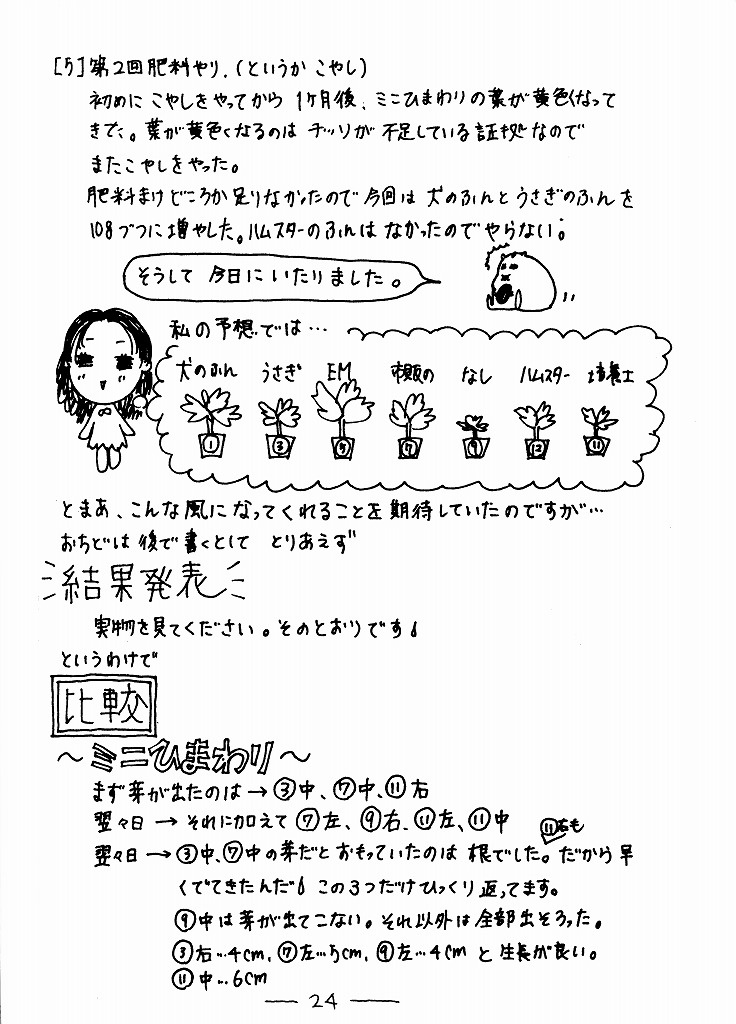 [5]第2回肥料やり.(というか こやし)
初めに こやしをやってから 1ケ月後、ミニひまわりの葉が黄色くなって
きた。葉が黄色くなるのは チッソが 不足している証拠なので
またこやしをやった。
肥料まけどころか足りなかったので 今回は 犬のふんとうさぎのふんを
10gづつに増やした。ハムスターのふんは なかったのでやらない。
そうして 今日にいたりました。
私の予想では…
犬のふん うさぎ EM 市販の なし ハムスター 培養土
① ③ ⑤ ⑦ ⑨ ⑫ ⑪
とまあ、こんな風になってくれることを期待していたのですが…
おちどは 後で書くとして とりあえず
結果発表
実物を見てください。そのとおりです!
というわけで
比較
〜ミニひまわり〜
まず芽が出たのは→③中、⑦中、⑪右
翌々日→それに加えて⑦左、⑨右、⑪左、⑪中
⑪右も
翌々日→③中、⑦中の芽だとおもっていたのは 根でした。だから早
くでてきたんだ! この3つだけひっくり返ってます。
⑨中は芽が出てこない。それ以外は全部出そろった。
③右…4cm, ⑦左…5cm, ⑨左…4cm と 生長が良い。
⑪中…6cm
— 24 —